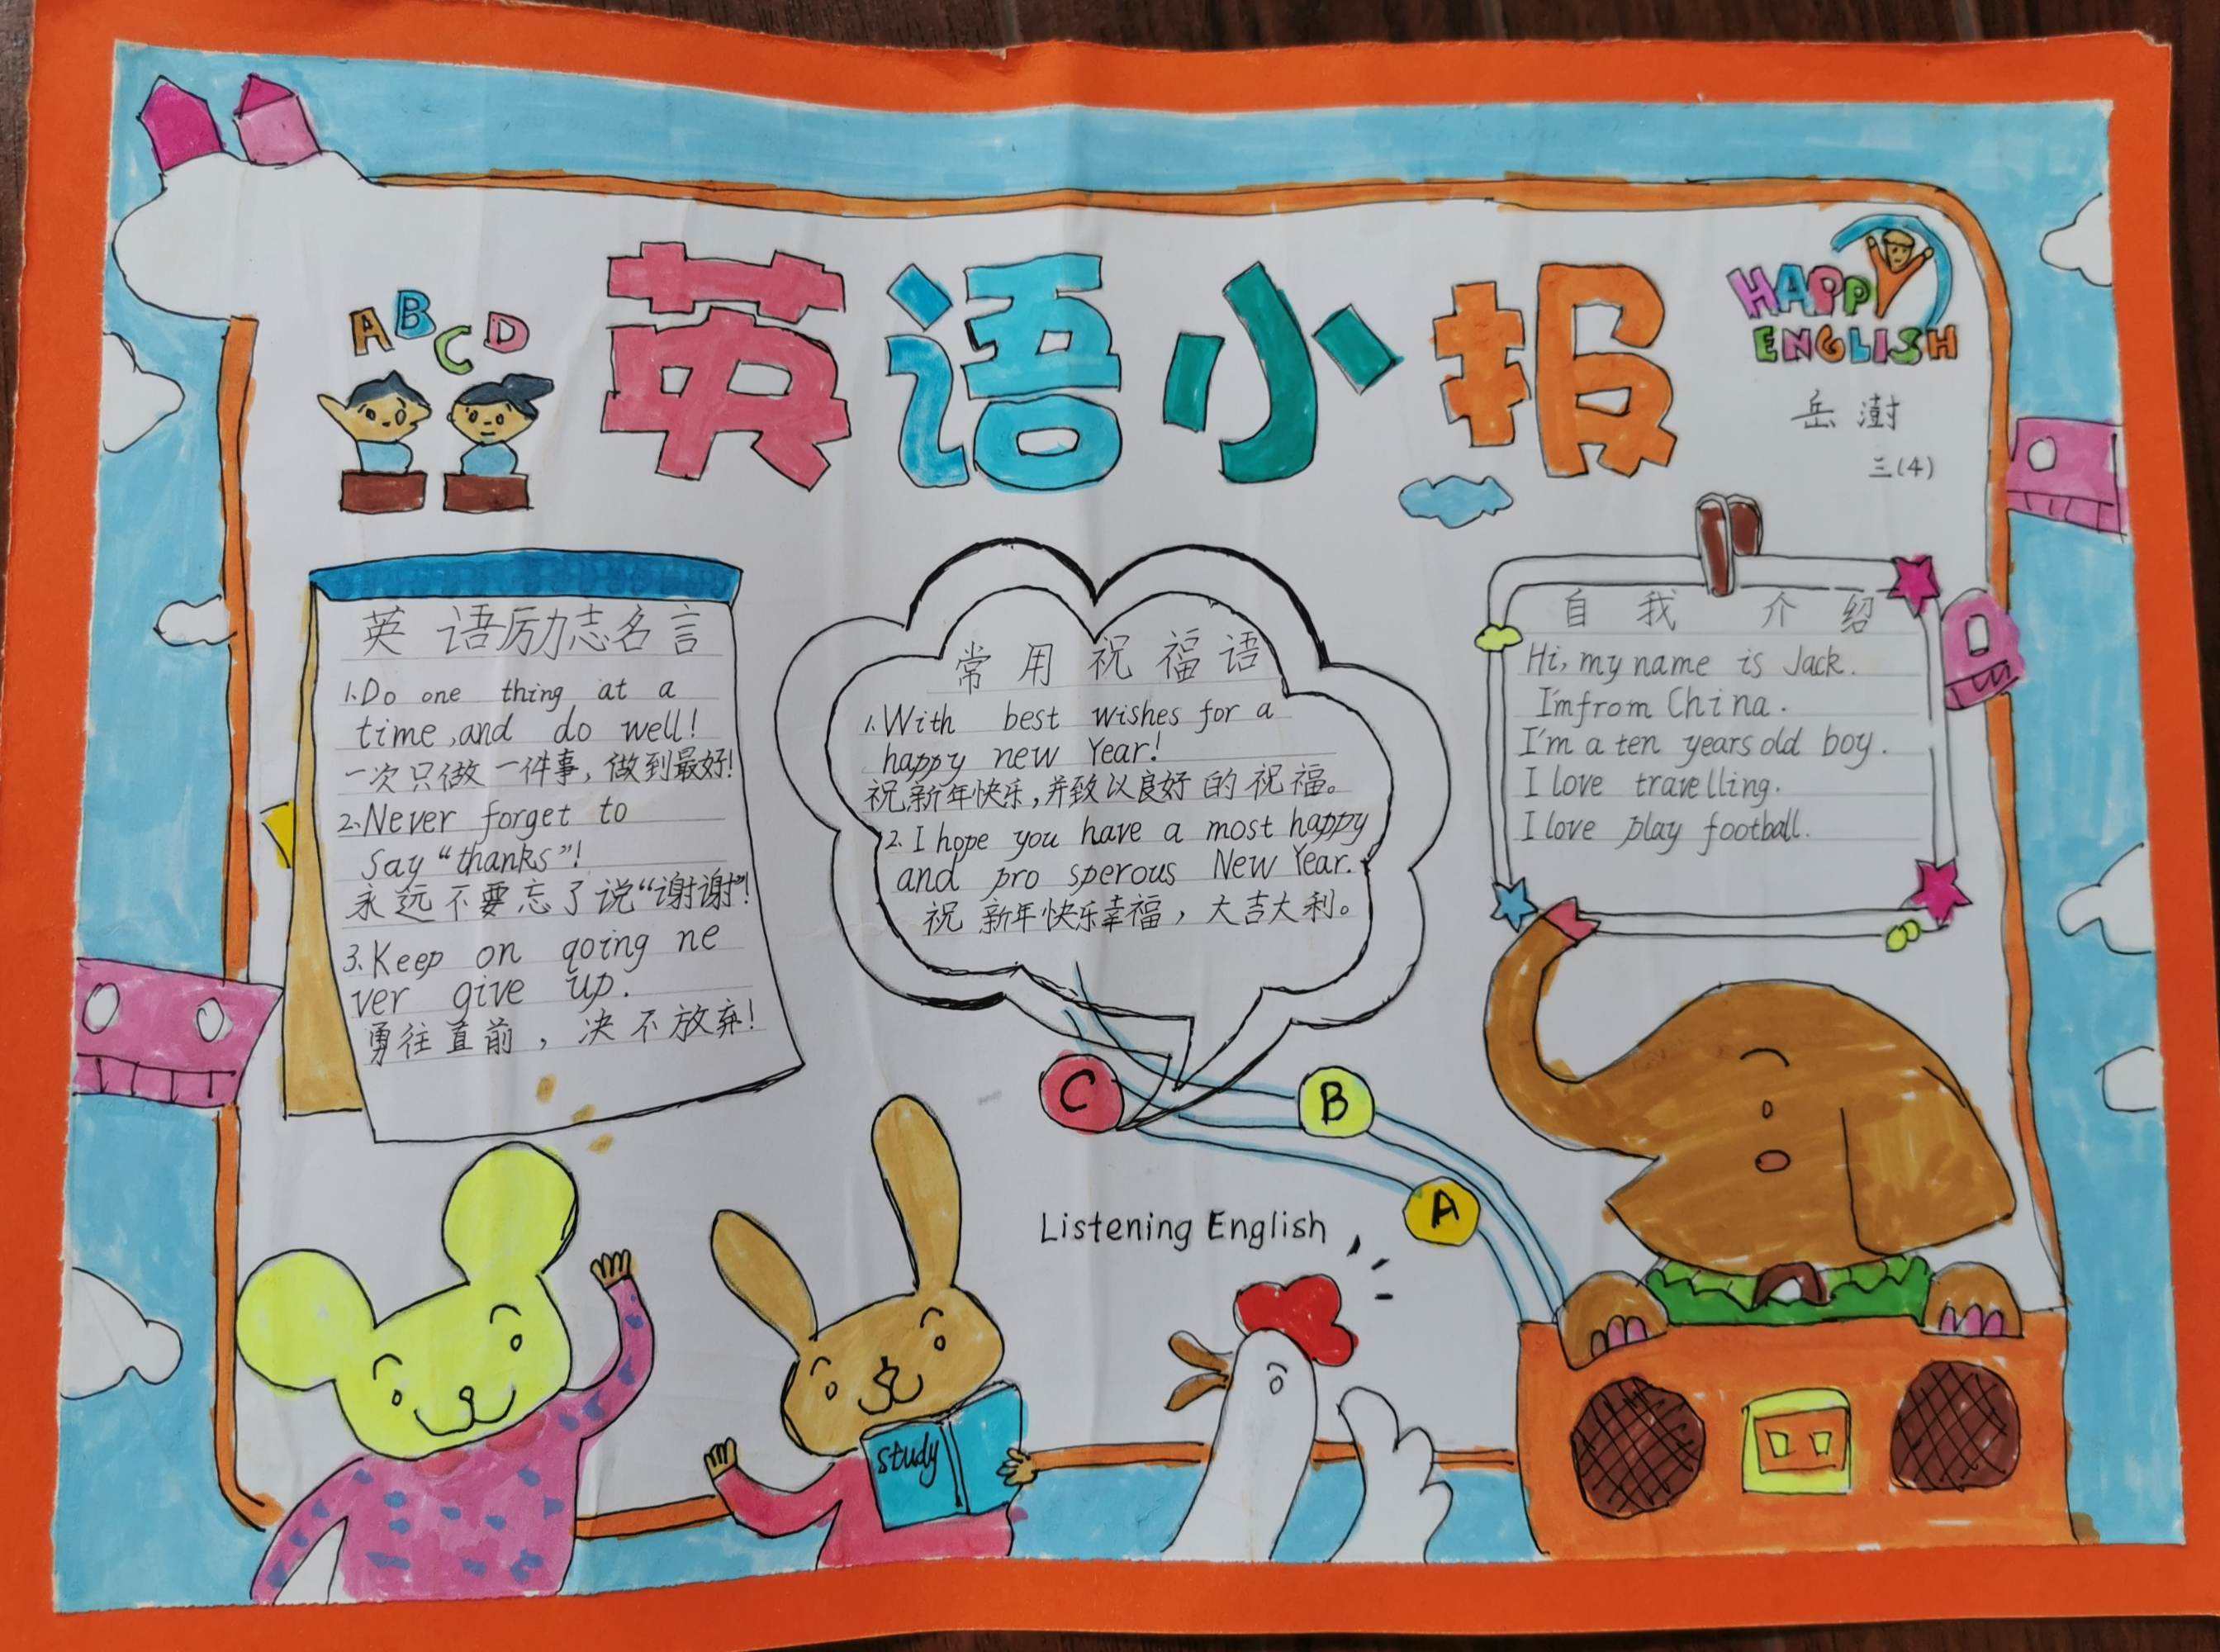 ABCD
英语小报
HAPPY
ENGLISH
岳澍
三(4)
英语厉力志名言
1.Do one thing at a
time,and do well!
一次只做一件事,做到最好!
2.Never forget to
Say “thanks”!
永远不要忘了说“谢谢”!
3.Keep on going ne
ver give up.
勇往直前,决不放弃!
常用祝福语
1.With best wishes for a
happy new Year!
祝新年快乐,并致以良好的祝福。
2.I hope you have a most happy
and pro sperous New Year.
祝新年快乐幸福,大吉大利。
自我介绍
Hi, my name is Jack.
I'mfrom China.
I'm a ten years old boy.
I love travelling.
I love play football.
C
B
A
Listening English
study